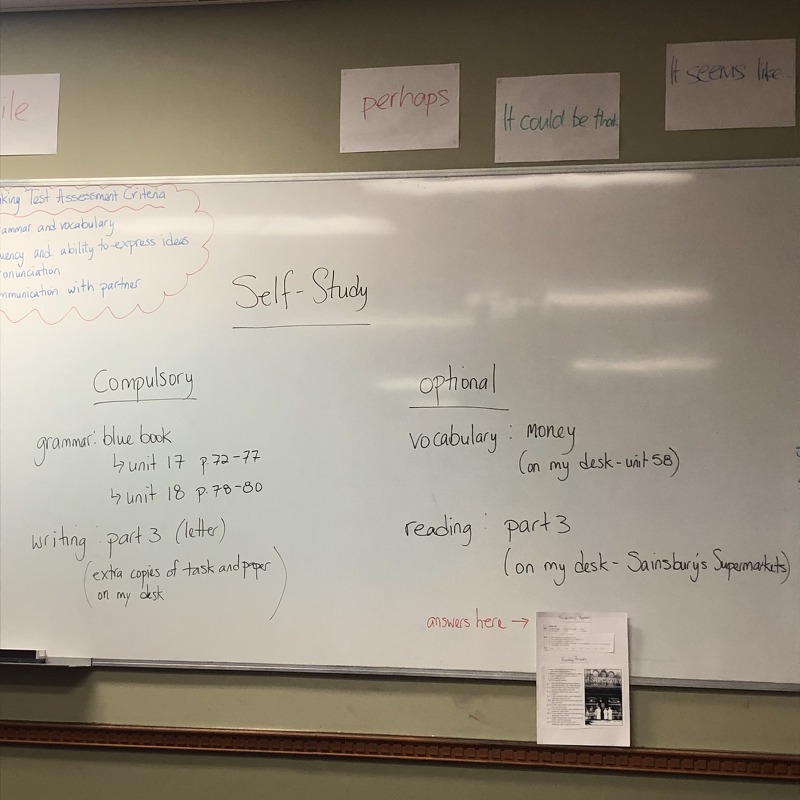 ile
perhaps
It could be that
It seems like...
king Test Assessment Criteria
ammar and vocabulary
uency and ability to express ideas
onunciation
mmunication with partner
Self-Study
Compulsory
grammar: blue book
↳ unit 17 p.72-77
↳ unit 18 p.78-80
writing: part 3 (letter)
(extra copies of task and paper
on my desk)
optional
vocabulary: money
(on my desk - unit 58)
reading: part 3
(on my desk - Sainsbury's Supermarkets)
answers here →